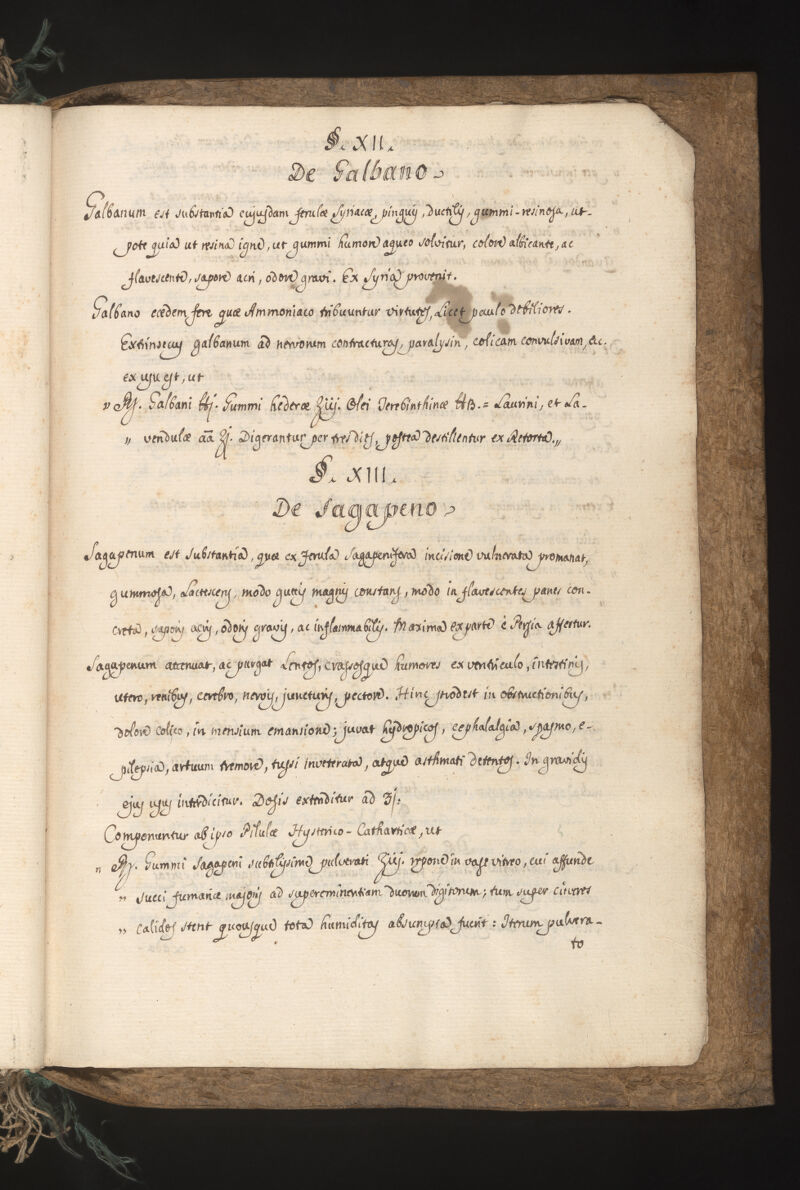 §. XII.
De Galbano
Galbanum est substantia cujusdam ferulæ Syriacæ, pinguis, ductilis, gummi-resinosa, ut-
pote quia ut resina igne, ut gummi humore aqueo solvitur, colore albicante, ac
flavescente, sapore acri, odore gravi. Ex Syria provenit.
Galbano eædem fere quæ Ammoniaco tribuuntur virtutes, Licet paulo debiliores.
Extrinsecus galbanum ad nervorum contracturas, paralysin, colicam convulsivam, &c.
ex usu est, ut
" ℞. Galbani ℔j. Gummi hederæ ℥iij. Olei Terebinthinæ ℔ß. = Laurini, et La-
" vendulæ aã ℥j. Digerantur per tres dies, postea destillentur ex Retorta."
§. XIII.
De Sagapeno
Sagapenum est substantia, quæ ex ferula Sagapenifera incisione vulnerata promanat,
gummosa, Lactescens, modo guttis magnis constans, modo in flavescentes panes con-
creta, saporis acris, odoris gravis, ac inflammabilis. Maxima ex parte è Persia affertur.
Sagapenum attenuat, ac purgat Lentos, crassosque humores ex ventriculo, intestinis,
utero, renibus, cerebro, nervis, juncturis, pectore. Hinc prodest in obstructionibus,
dolore colico, in mensium emansione; juvat hydropicos, cephalalgia, spasmo, e-
pilepsia, artuum tremore, tussi inveterata, atque asthmati detentos. In gravidis
ejus usus interdicitur. Dosis extenditur ad ʒj.
Componuntur ab ipso Pilulæ Hysterico-Catharticæ, ut
" ℞. Gummi Sagapeni subtilissime pulverati ℥ij. repone in vase vitreo, cui affunde
" succi fumariæ majoris ad supereminentiam duorum digitorum; tum super cineres
" calidos stent quousque tota humiditas absumpta fuerit: Iterum pulvera-
to